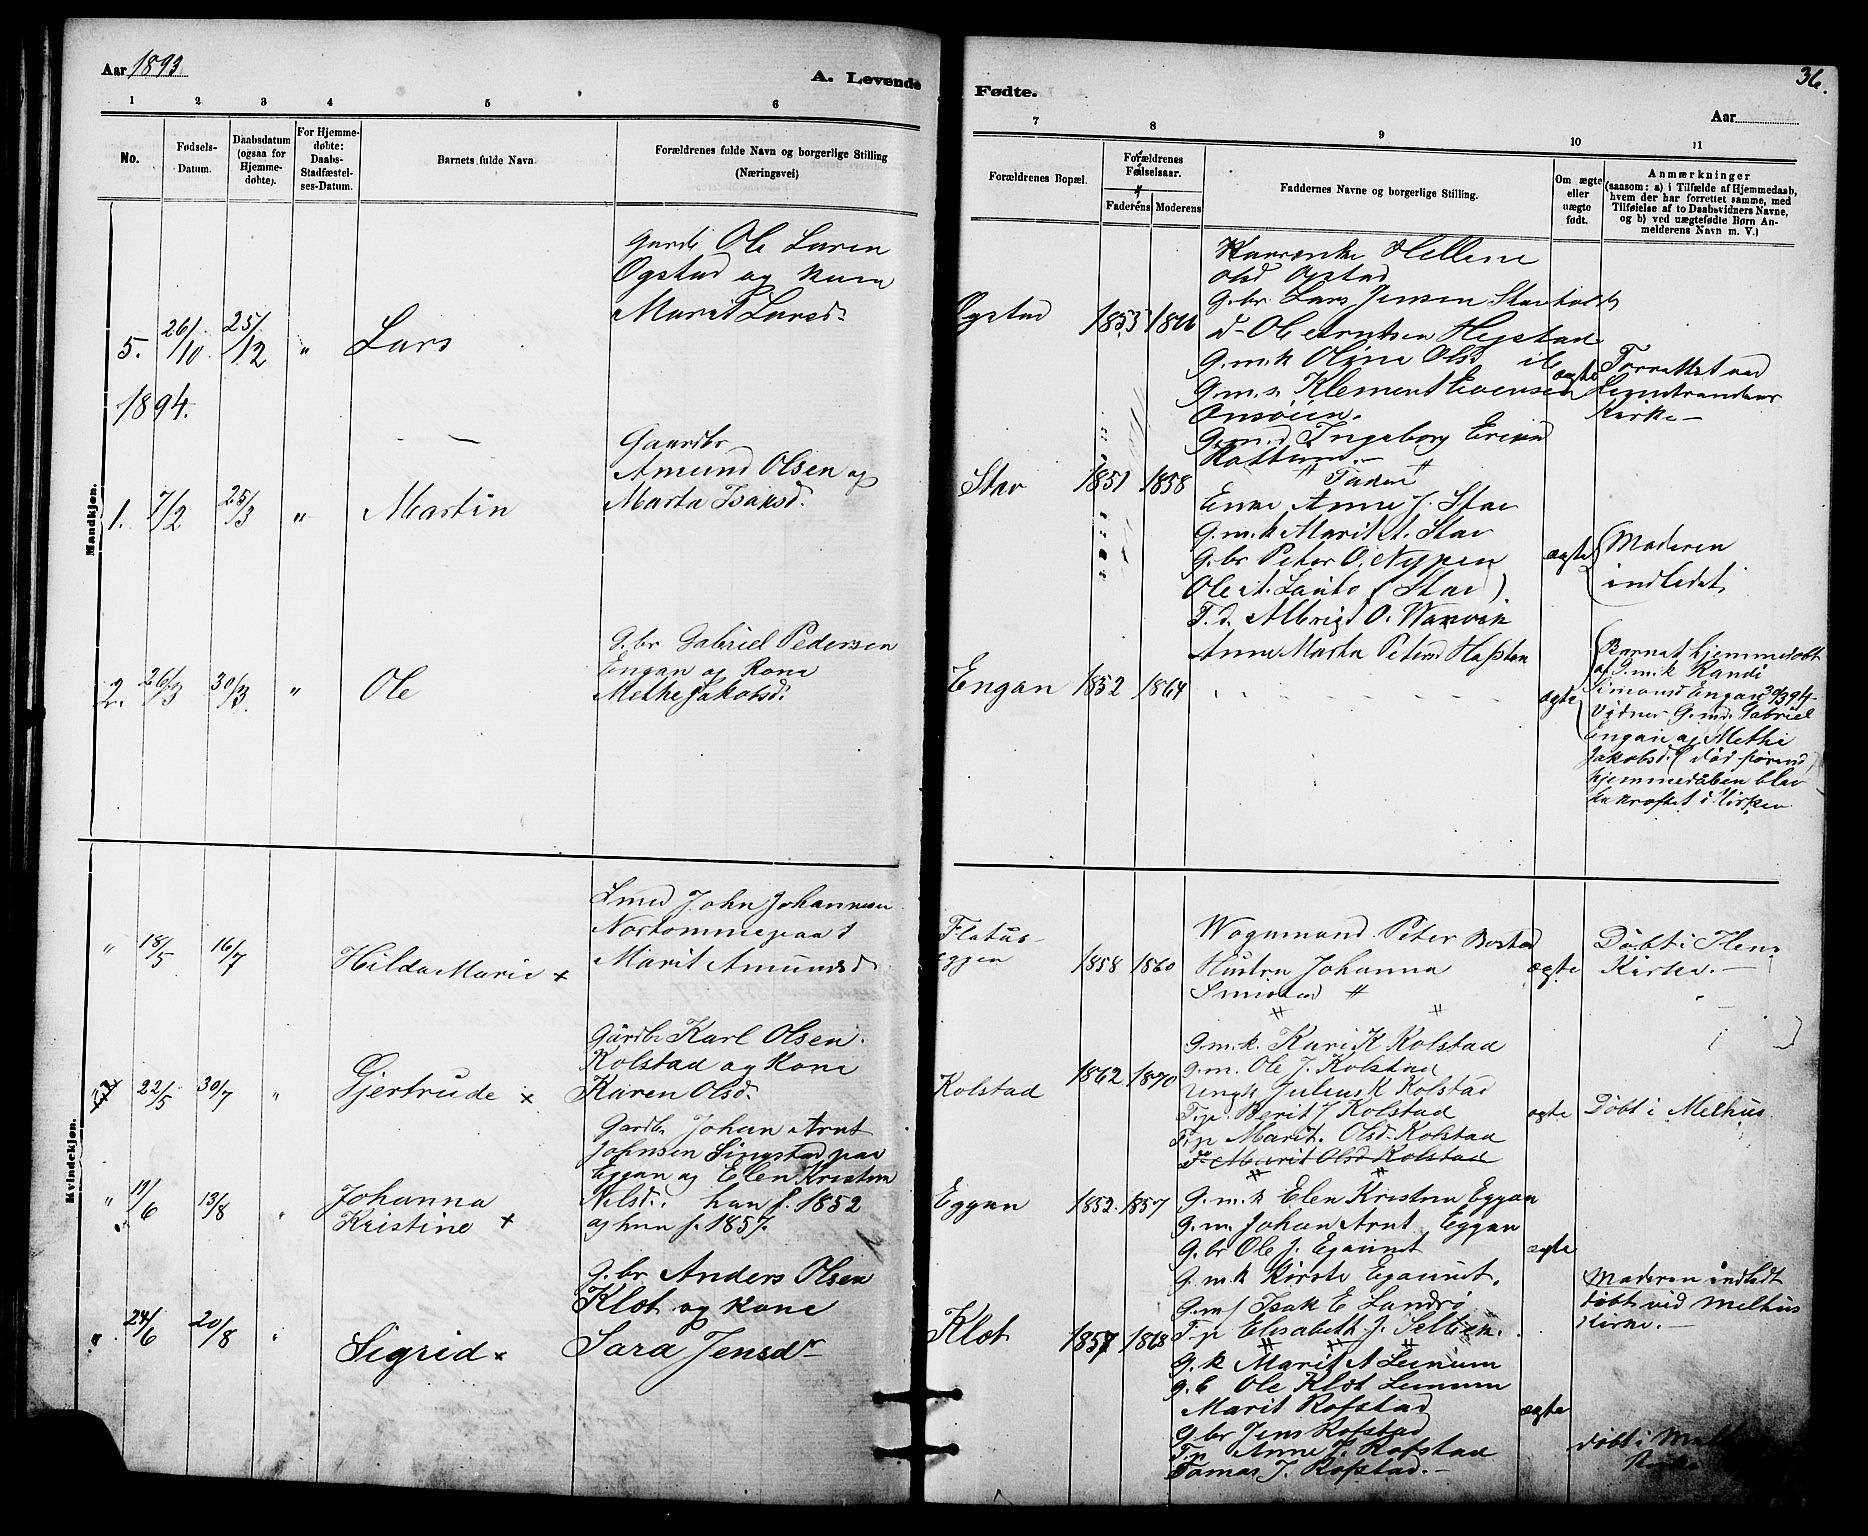 Aar 1893
A. Levende
1 2 3 4 5 6
No.
Fødsels-
Datum.
Daabsdatum
(ogsaa for
Hjemme-
døbte).
For Hjemme-
døbte:
Daabs-
Stadfæstel-
ses-Datum.
Barnets fulde Navn
Forældrenes fulde Navn og borgerlige Stilling
(Næringsvei)
Mandkjøn.
Ole Laren
Ogstad og kone
Marit Larsd.
5. 26/10 25/12 " Lars
1894.
Gaardbr
Amund Olsen og
Marta Isaksd.
1. 7/2 25/3 " Martin
G.br Gabriel Pedersen
Engan og Kone
Methe Jakobsd.
2. 26/3 30/3 " Ole
Kvindekjøn.
Smed John Johannesen
Marit Amundsd
" 18/5 16/7 Hilda Marie x
Gårdbr Karl Olsen
Kolstad og Kone
Karen Olsd.
22/5 30/7 " Gjertrude x
Gardbr Johan Arnt
Johnsen Singstad paa
Eggan og Elen Kristine
Nilsd. han f. 1852
og hun f. 1857.
" 19/6 13/8 " Johanna
Kristine x
G.br Anders Olsen
Klæt og kone
Sara Jensdr
" 24/6 20/8 " Sigrid x
Fødte.
36.
Aar
7 8 9 10 11
Forældrenes Bopæl.
Forældrenes
Fødselsaar.
Faderens Moderens
Faddernes Navne og borgerlige Stilling.
Om ægte
eller
uægte
født.
Anmærkninger
(saasom: a) i Tilfælde af Hjemmedaab,
hvem der har forrettet samme, med
Tilføielse af to Daabsvidners Navne,
og b) ved uægtefødte Børn An-
melderens Navn m. V.)
Øgstad 1853 1866
Hellene
Olsd Ogstad
G.br Lars Jensen
Ole Arntsen Hegstad
G.m.k Oline Olsd
G.m.s. Klement Evensen
Onsøien.
G.m.d Ingeborg Eriksd
Rottum.
ægte
Forrettet ved
Leinstrandens
Kirke
Stav 1851 1858
Fader
Enke Anne J. Stav
G.m.k Marit A. Stav
G.br Peter O. Nypen
Ole A. (Stav)
T.d. Albrigt O. Wanvik
Anne Marta Petersd Hafstan
ægte
Moderen
indledet
Engan 1852 1864
ægte
Barnet hjemmedøbt
af G.m.k Randi
Simonsd Engan 30/3 94.
Vidner G.md. Gabriel
Engan og Methe
Jakobsd.
hjemmedåben blev
bekræftet i Kirken
Flatås-
eggen 1858 1860
Wognmand Peter
Hustru Johanna
ægte
Døbt i
Kirke.
Kolstad 1862 1870
G.m.k. Kari K Kolstad
G.m. Ole J. Kolstad
Ungk Julius K Kolstad
T.p. Berit J Kolstad
T.p Marit. Olsd. Kolstad
Do Marit Olsd Kolstad
ægte
Døbt i Melhus
Eggan 1852 1857
G.m.k Elen Kristina Eggan
G.m. Johan Arnt Eggan
G.br Ole J. Egannet
G.m.k Kirste Egannet.
G.m. Isak E Landrø
T.p Elisabeth J. Seltien.
ægte
Moderen indledt
døbt ved Melhus
Kirke.
Klæt 1857 1868
G.k Marit A Leinum
G.b Ole Klæt Leinum
Marit Rofstad
G.br Jens Rofstad
T.p Anne J. Rofstad
Tomas J. Rofstad.
ægte
døbt i
Kirke